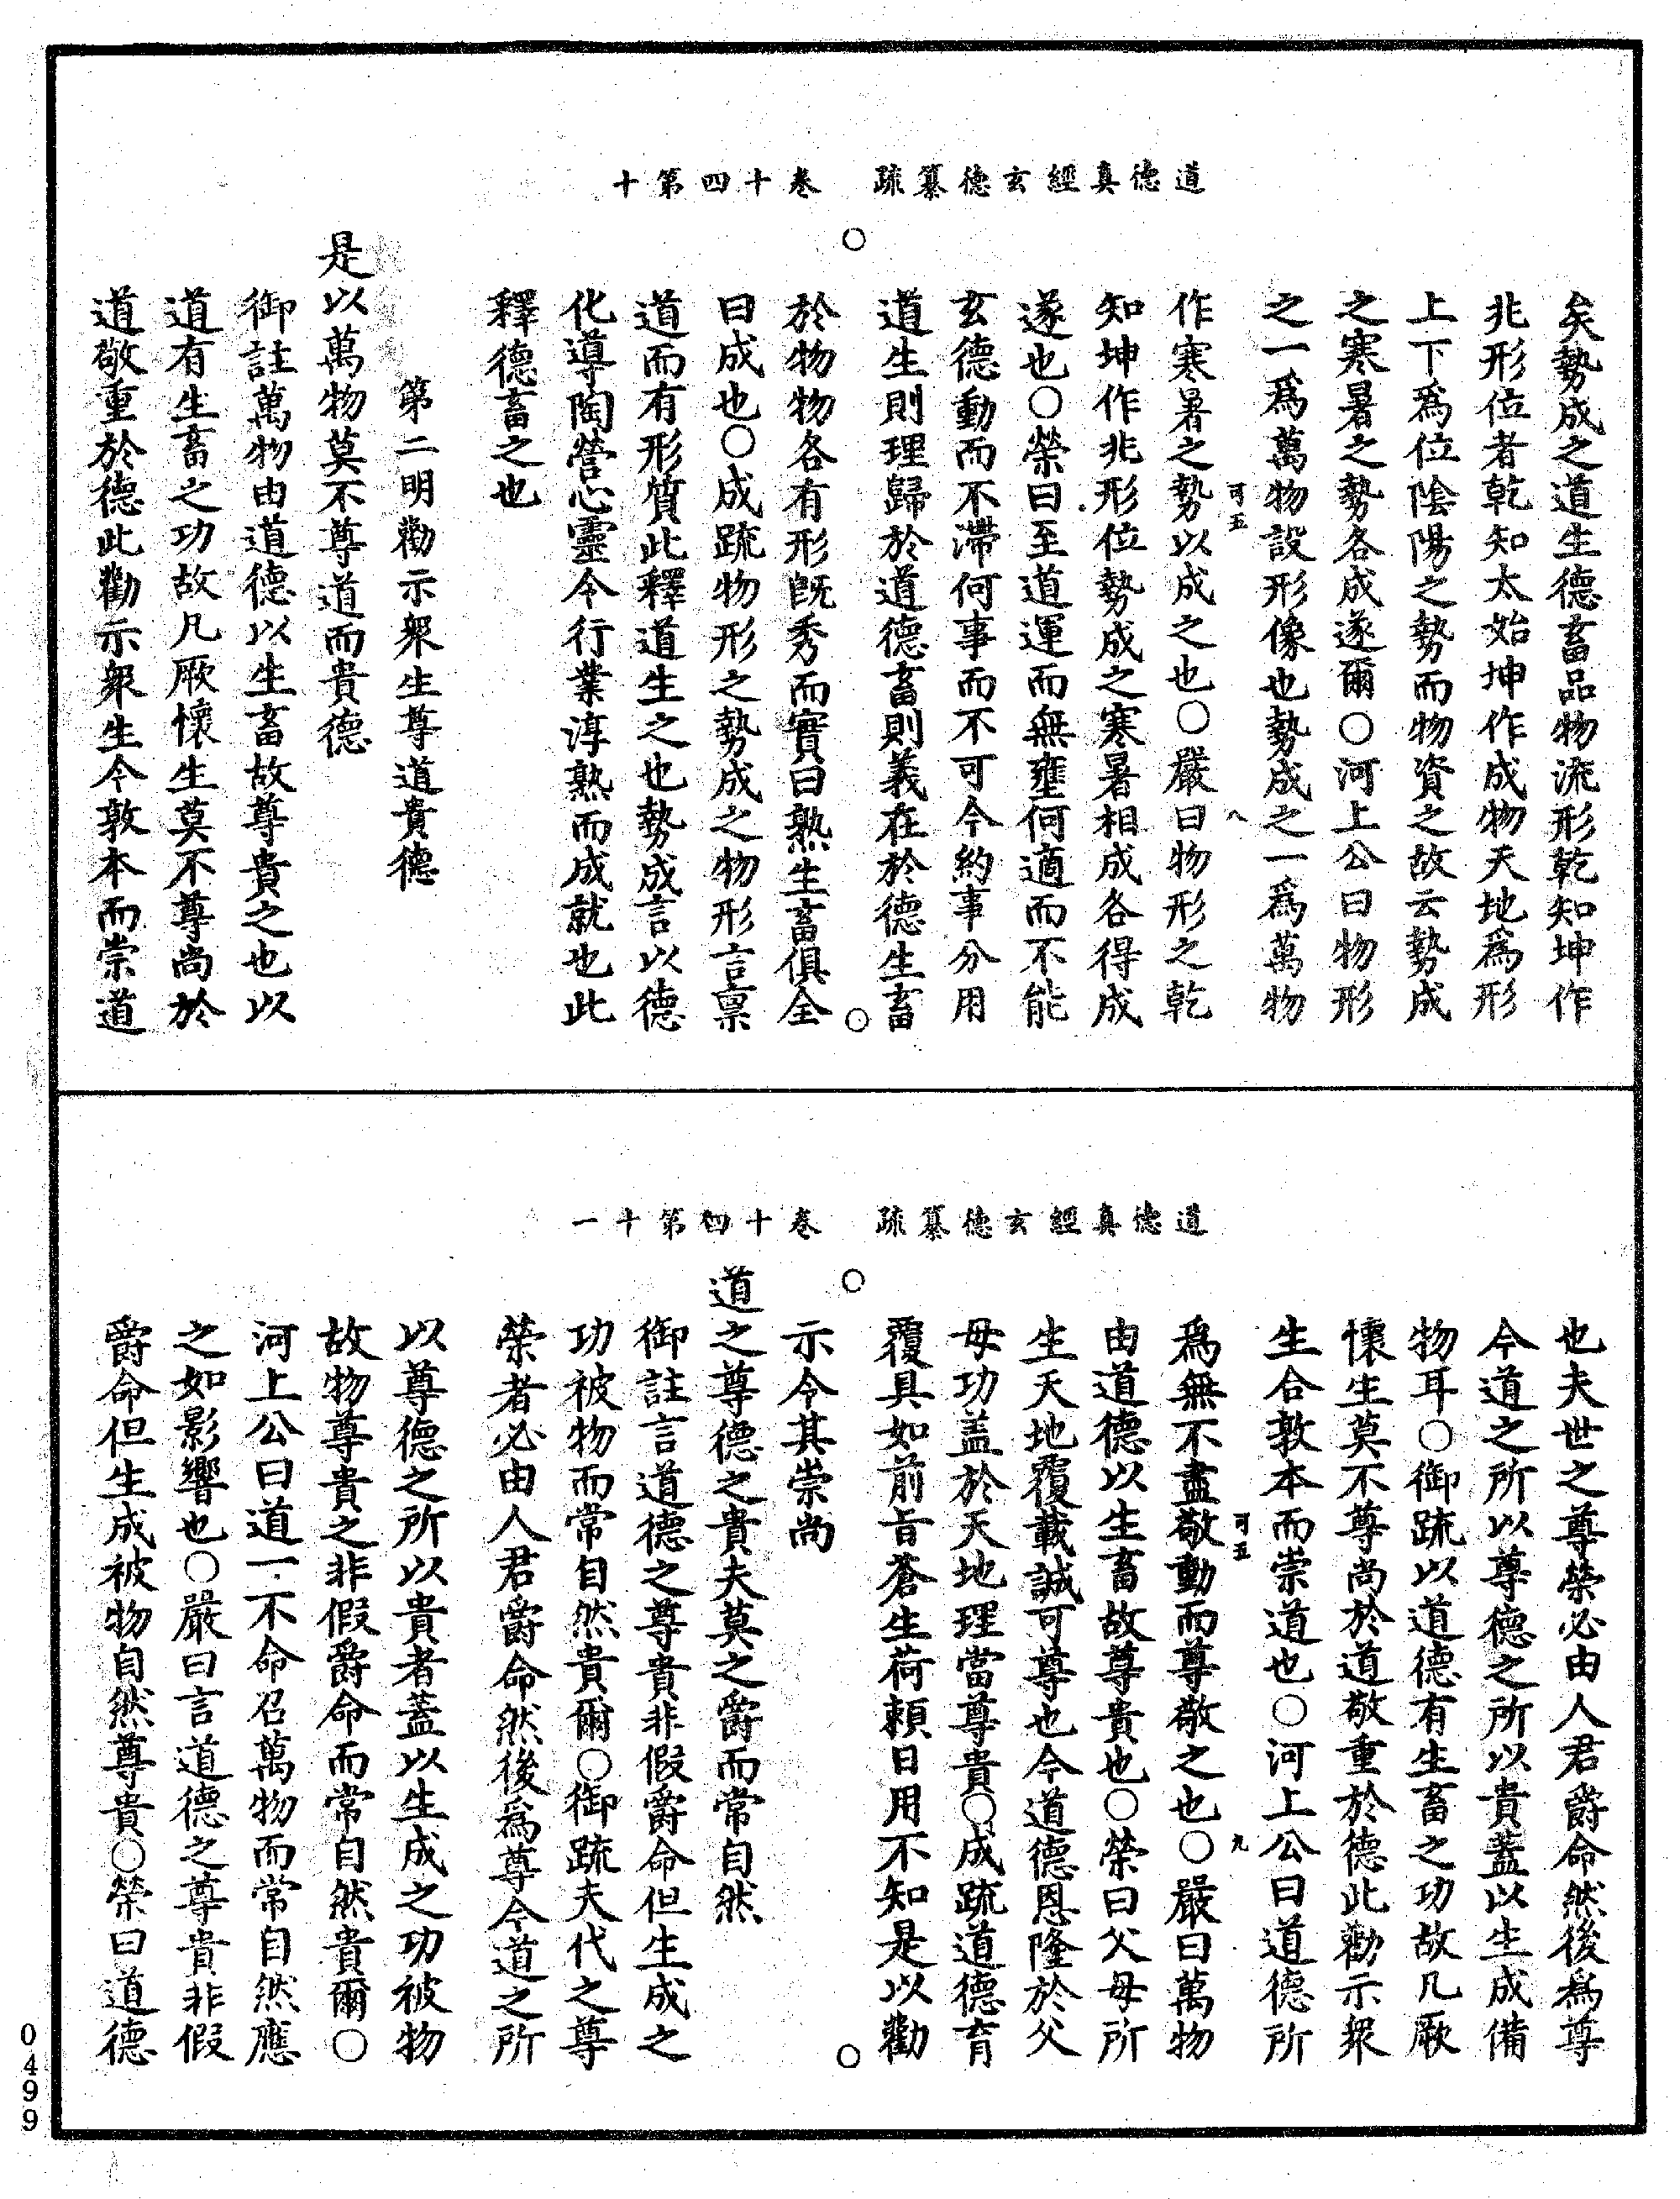 道德真經玄德纂疏　卷十四第十
矣勢成之道生德畜品物流形乾知坤作
兆形位者乾知太始坤作成物天地爲形
上下爲位陰陽之勢而物資之故云勢成
之寒暑之勢各成遂爾○河上公曰物形
之一爲萬物設形像也勢成之一爲萬物
可五　八
作寒暑之勢以成之也○嚴曰物形之乾
知坤作兆形位勢成之寒暑相成各得成
遂也○榮曰至道運而無壅何適而不能
玄德動而不滯何事而不可今約事分用
道生則理歸於道德畜則義在於德生畜
於物物各有形旣秀而實曰熟生畜俱全
曰成也○成疏物形之勢成之物形言稟
道而有形質此釋道生之也勢成言以德
化導陶營心靈令行業淳熟而成就也此
釋德畜之也
第二明勸示衆生尊道貴德
是以萬物莫不尊道而貴德
御註萬物由道德以生畜故尊貴之也以
道有生畜之功故凡厥懷生莫不尊尚於
道敬重於德此勸示衆生令敦本而崇道
道德真經玄德纂疏　卷十四第十一
也夫世之尊榮必由人君爵命然後爲尊
今道之所以尊德之所以貴蓋以生成備
物耳○御疏以道德有生畜之功故凡厥
懷生莫不尊尚於道敬重於德此勸示衆
生合敦本而崇道也○河上公曰道德所
可五　九
爲無不盡敬動而尊敬之也○嚴曰萬物
由道德以生畜故尊貴也○榮曰父母所
生天地覆載誠可尊也今道德恩隆於父
母功盖於天地理當尊貴○成疏道德育
覆具如前旨蒼生荷賴日用不知是以勸
示令其崇尚
道之尊德之貴夫莫之爵而常自然
御註言道德之尊貴非假爵命但生成之
功被物而常自然貴爾○御疏夫代之尊
榮者必由人君爵命然後爲尊今道之所
以尊德之所以貴者蓋以生成之功被物
故物尊貴之非假爵命而常自然貴爾○
河上公曰道一不命召萬物而常自然應
之如影響也○嚴曰言道德之尊貴非假
爵命但生成被物自然尊貴○榮曰道德
0499